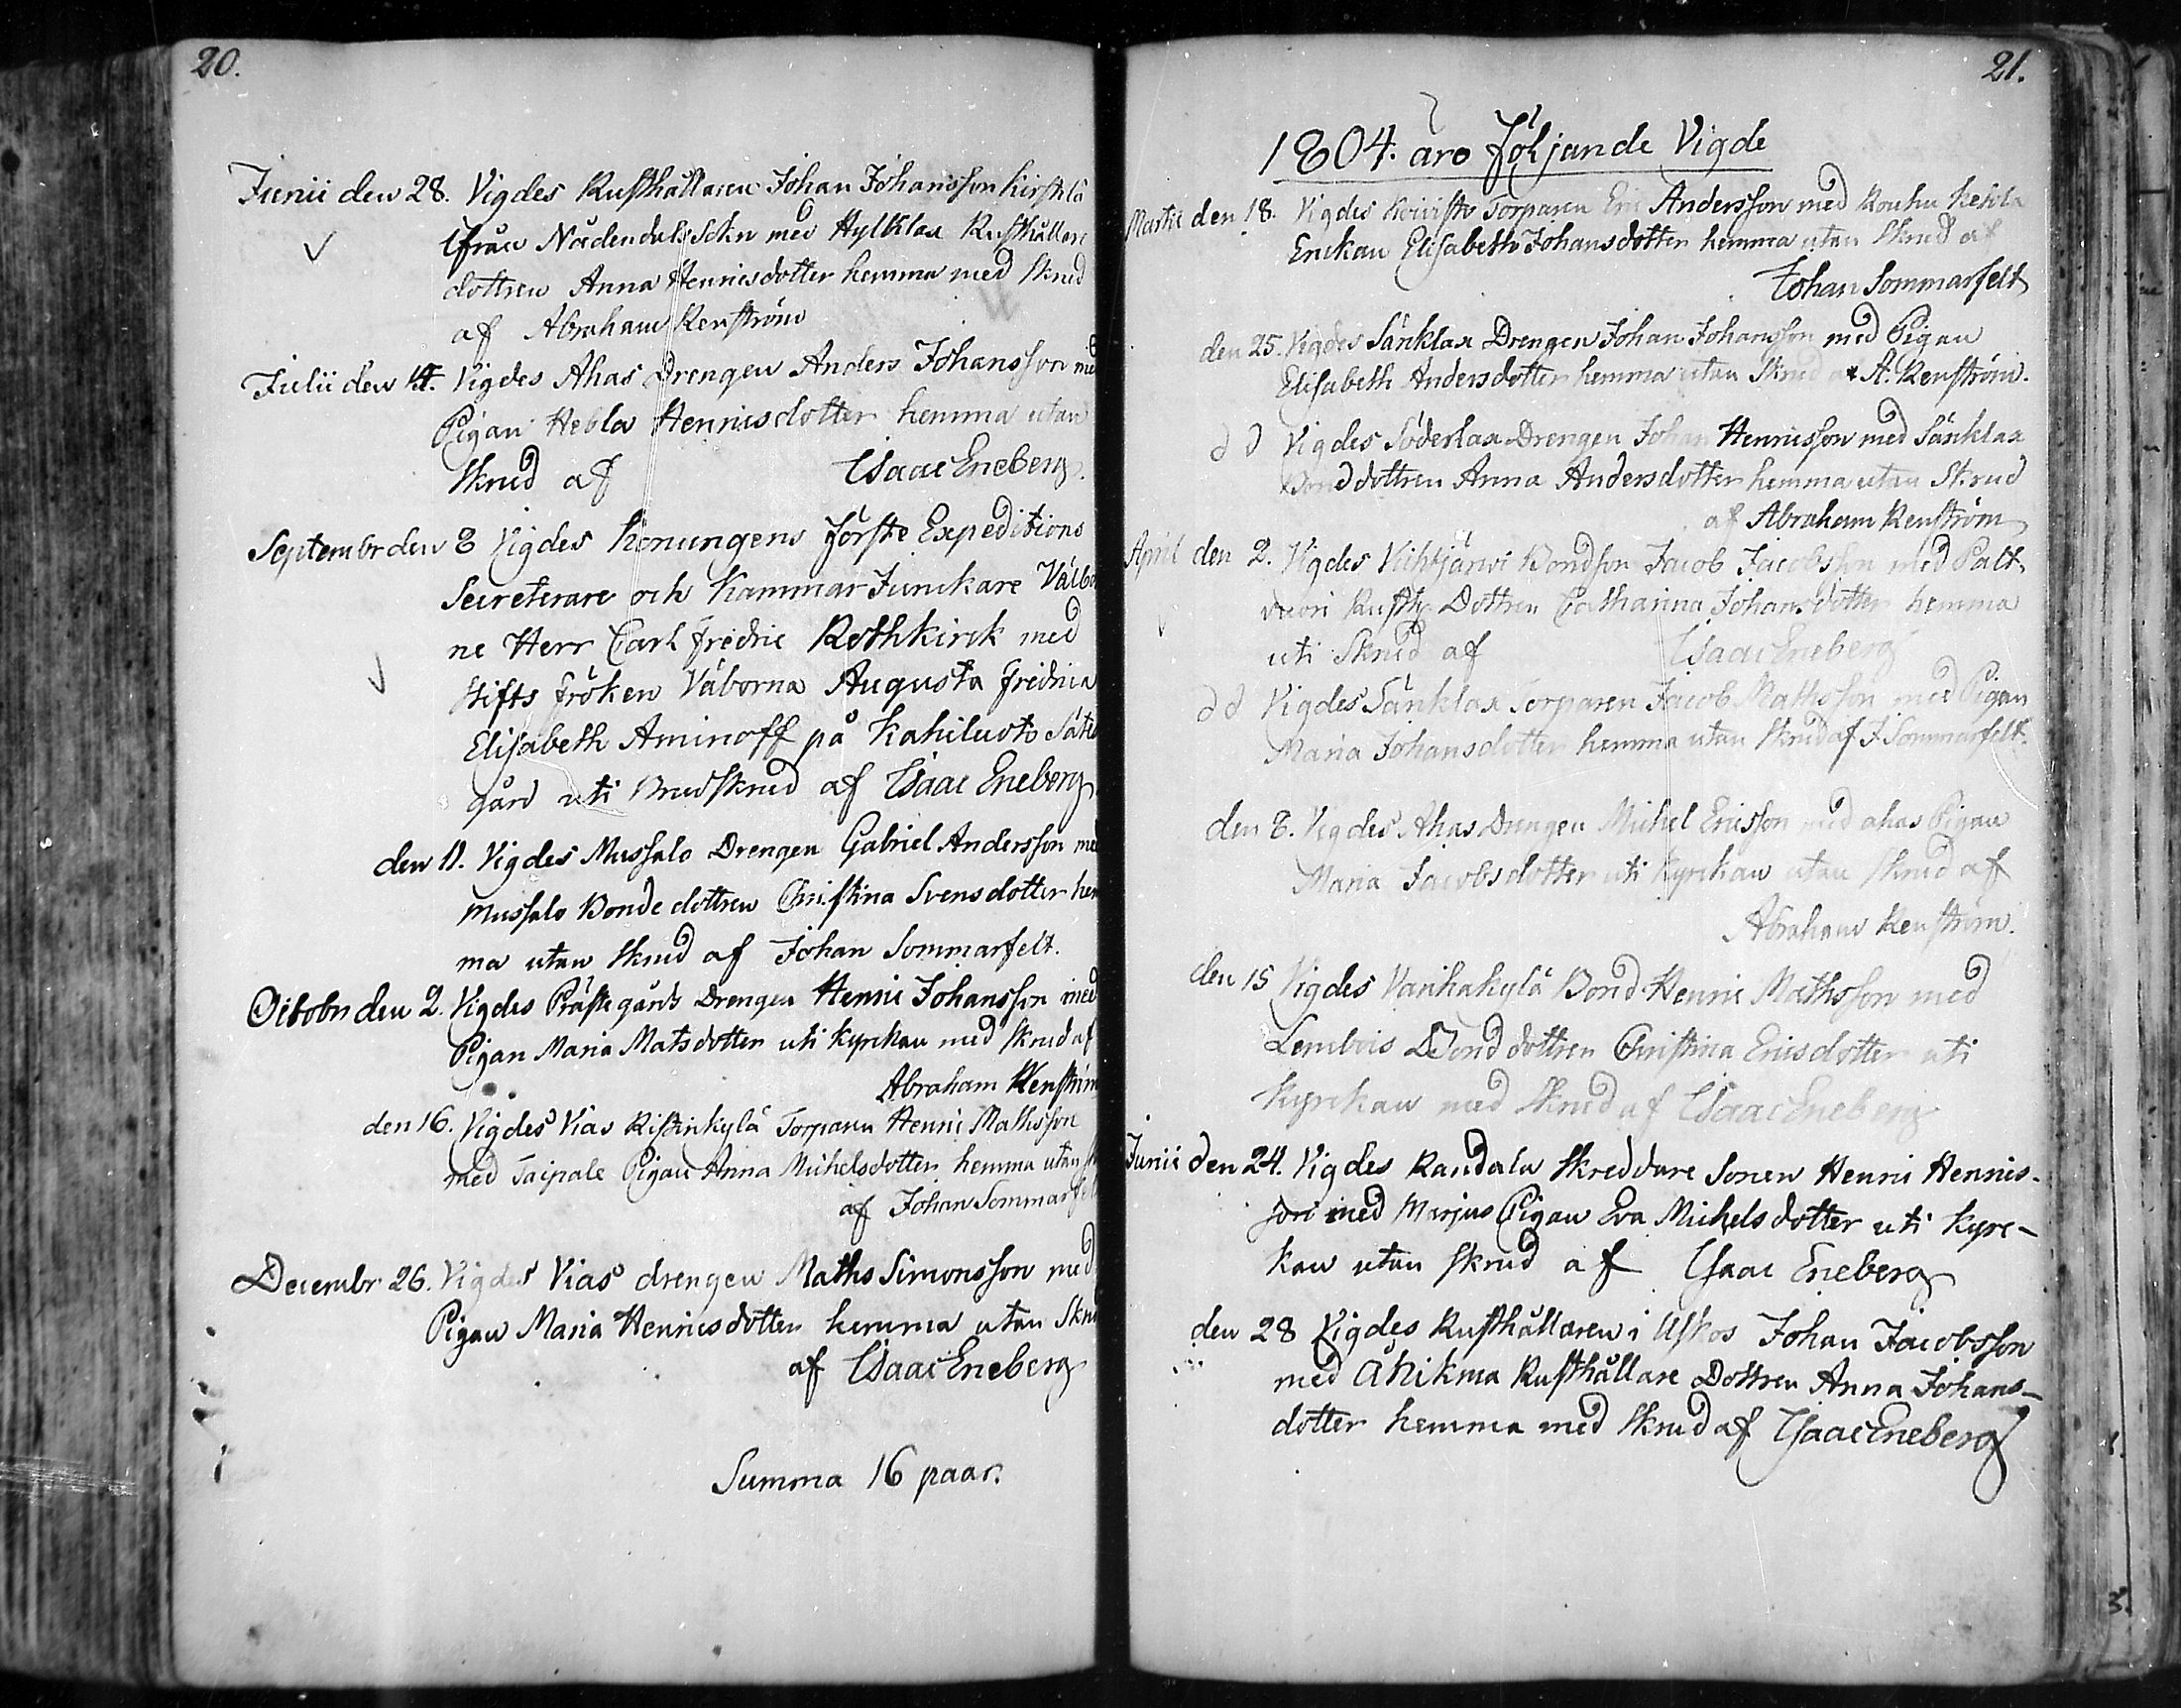 20.
Junii den 28. Vigdes Rusthållaren Johan Johansson
ifrån Nådendals Sokn med Hylklax Rusthållare
dottren Anna Hennicsdotter hemma med Skrud
af Abraham Renström
Julii den 14. Vigdes Ahas Drengen Anders Johansson med
Pigan Hebla Hennicsdotter hemma utan
Skrud af Isaac Eneberg.
Septembr den 8 Vigdes Konungens förste Expeditions
Secreterare och Kammar Junckare Välbor
ne Herr Carl Fredric Rothkirck med
Stifts fröken Välborna Augusta Fredrica
Elisabeth Aminoff på Kahiluoto Säte
gård uti Brudskrud af Isaac Eneberg
den 11. Vigdes Mussalo Drengen Gabriel Andersson med
Mussalo Bonde dottren Christina Svensdotter hem
ma utan Skrud af Johan Sommarfelt.
Octobr den 2. Vigdes Prästegårds Drengen Henric Johansson med
Pigan Maria Matsdotter uti Kyrckan med Skrud af
Abraham Renström
den 16. Vigdes Vias Ristinkylä Torparen Henric Mathsson
med Taipale Pigan Anna Michelsdotter hemma utan Sk
af Johan Sommarfelt
Decembr 26. Vigdes Vias drengen Maths Simonsson med
Pigan Maria Hennicsdotter hemma utan Skrud
af Isaac Eneberg
Summa 16 paar.
21.
1804. äro följande Vigde
Martii den 18. Vigdes Koivisto Torparen Eric Andersson med Rouhu
Enckan Elisabeth Johansdotter hemma utan Skrud af
Johan Sommarfelt
den 25. Vigdes Sänklax Drengen Johan Johansson med Pigan
Elisabeth Andersdotter hemma utan Skrud af A. Renström.
d d Vigdes Söderlax Drengen Johan Hennicsson med Sänklax
Bonddottren Anna Andersdotter hemma utan Skrud
af Abraham Renström
April den 2. Vigdes Vihtjärvi Bondson Jacob Jacobsson med Palt-
vuori Rusth. Dottren Catharina Johansdotter hemma
uti Skrud af Isaac Eneberg
d d Vigdes Sänklax Torparen Jacob Mathsson med Pigan
Maria Johansdotter hemma utan Skrud af J Sommarfelt.
den 8. Vigdes Ahas Drengen Michel Ericsson med ahas Pigan
Maria Jacobsdotter uti Kyrckan utan Skrud af
Abraham Renström.
den 15 Vigdes Vanhakylä Bond Henric Mathsson med
Lembois Bond dottren Christina Ericsdotter uti
Kyrckan med Skrud af Isaac Eneberg
Junii den 24. Vigdes Randala Skreddare Sonen Henric Hennics-
son med Marjus Pigan Eva Michelsdotter uti Kyrc-
kan utan Skrud af Isaac Eneberg
den 28 Vigdes Rusthållaren i Uskos Johan Jacobsson
med Rusthållare Dottren Anna Johans-
dotter hemma med Skrud af Isaac Eneberg